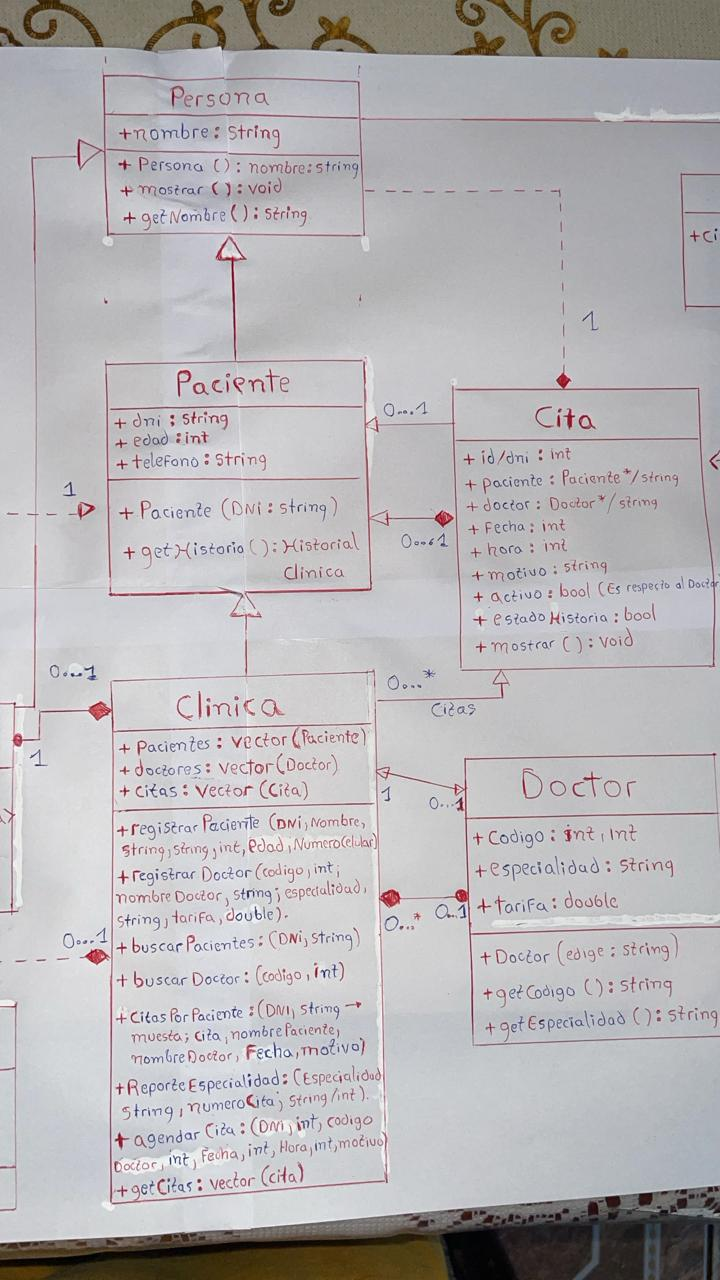 Persona
+nombre: String
+ Persona (): nombre: string
+ mostrar (): void
+ getNombre (): string
1
+ci
Paciente
+ dni : String
+ edad : int
+ telefono : String
+ Paciente (DNi: string)
+ getHistoria (): Historial
Clinica
1
0...1
0...1
Cita
+ id/dni : int
+ paciente : Paciente*/string
+ doctor : Doctor*/string
+ Fecha : int
+ hora : int
+ motivo : string
+ activo : bool (Es respecto al Doctor
+ estado Historia : bool
+ mostrar () : void
0...1
1
0...*
Citas
Clinica
+ Pacientes : vector (Paciente)
+ doctores : vector (Doctor)
+ citas : vector (Cita)
+registrar Paciente (DNi, Nombre,
String, string, int, edad, Numero Celular)
+registrar Doctor (codigo, int;
nombre Doctor, string; especialidad,
string, tarifa, double).
+ buscarPacientes: (DNi, String)
+ buscar Doctor: (codigo, int)
+ CitasPorPaciente : (DNI, String →
muesta; cita, nombre Paciente,
nombre Doctor, Fecha, motivo)
+Reporte Especialidad: (Especialidad
String, numero Cita; String/int).
+ agendar Cita : (DNi, int, codigo
Doctor, int, Fecha, int, Hora, int, motivo)
+ getCitas : vector (cita)
1
0...1
0...*
0..1
0...1
Doctor
+ Codigo : int, Int
+ especialidad : String
+ tarifa : double
+ Doctor (edige : string)
+ getCodigo () : string
+ getEspecialidad () : string